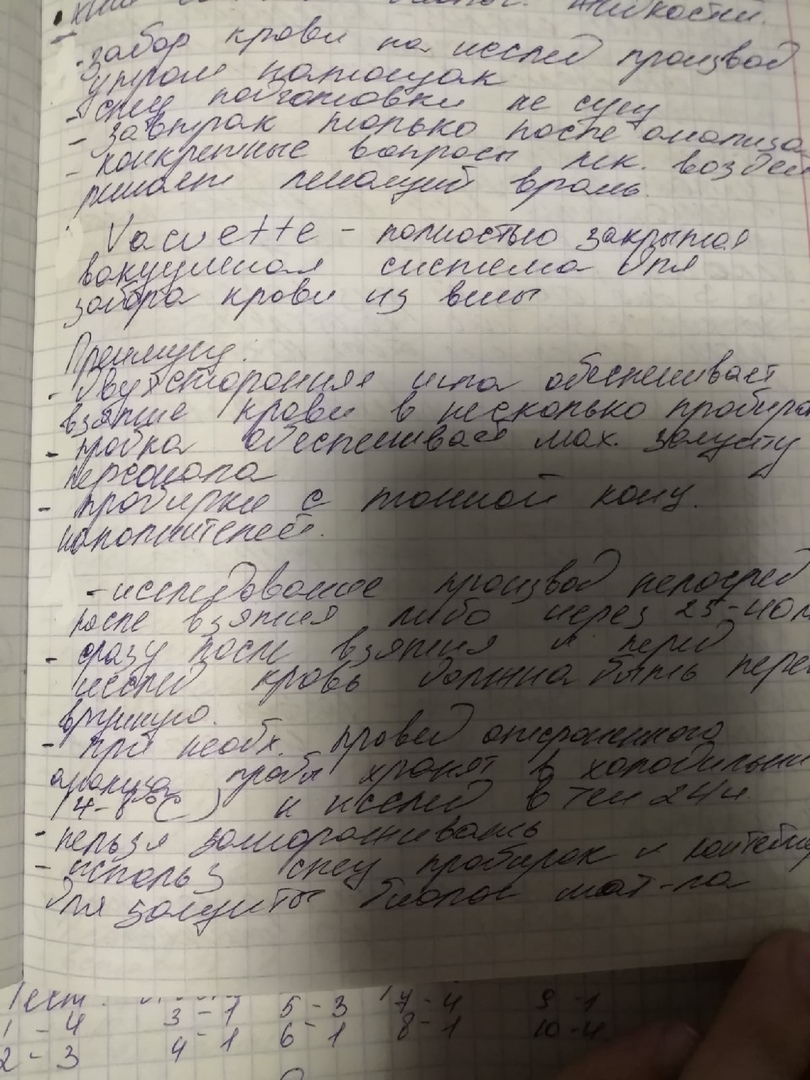 жидкости.
- забор крови на исслед производ
утром натощак
- спец подготовки не сущ
- завтрак только после анализа
- конкретные вопросы лек. воздей
решает лечащий врачь.
Vacuette - полностью закрытая
вакуумная система для
забора крови из вены
Преимущ:
- двухсторонняя игла обеспечивает
взятие крови в несколько пробира
- пробка обеспечивает мах. защиту
персонала
- пробирки с точной конц.
наполнителей.
- исследование производ непосред
после взятия либо через 25-40м
- сразу после взятия и перед
исслед кровь должна быть пере
вручную.
- При необх. провед отсроченного
анализа пробы хранят в холодильни
(4-8°С) и исслед в теч 24ч.
- нельзя замораживать
- использ спец пробирок и контейне
для защиты биолог мат-ла
Тест.
1 - 4 3 - 1 5 - 3 7 - 4 9 - 1
2 - 3 4 - 1 6 - 1 8 - 1 10 - 4